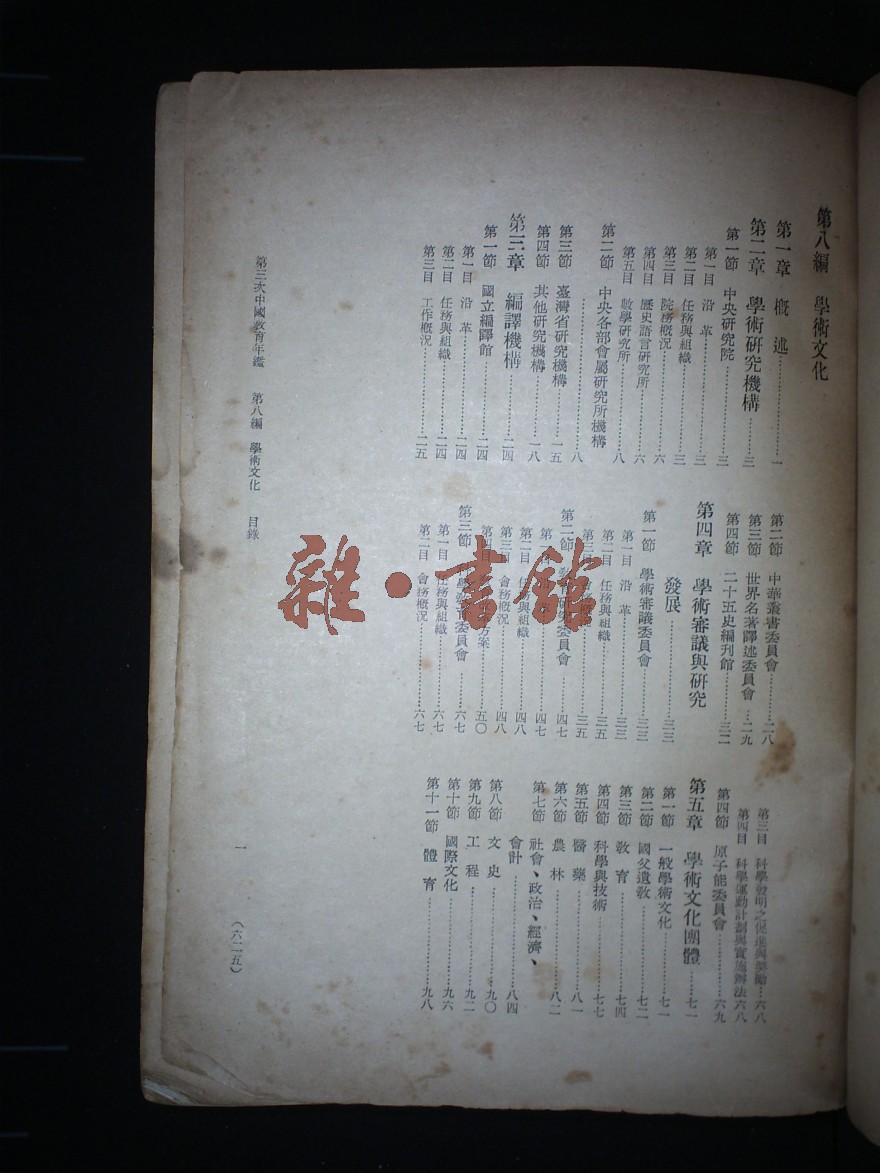 第八編　學術文化
第一章　概　述…………一
第二章　學術研究機構……三
第一節　中央研究院………三
第一目　沿　革…………三
第二目　任務與組織………三
第三目　院務概況…………六
第四目　歷史語言研究所……六
第五目　數學研究所………八
第二節　中央各部會屬研究所機構
…………八
第三節　臺灣省研究機構……一五
第四節　其他研究機構……一八
第三章　編譯機構………二四
第一節　國立編譯館………二四
第一目　沿　革…………二四
第二目　任務與組織………二四
第三目　工作概況…………二五
第二節　中華叢書委員會……二八
第三節　世界名著譯述委員會…二九
第四節　二十五史編刊館……三二
第四章　學術審議與研究
發展…………三三
第一節　學術審議委員會……三三
第一目　沿　革…………三三
第二目　任務與組織………三五
第三目　會務概況…………三五
第二節　教育研究委員會……四七
第一目　沿革…………四七
第二目　任務與組織………四八
第三目　會務概況…………四八
第四目　方案…………五〇
第三節　教育委員會………六七
第一目　任務與組織………六七
第二目　會務概況…………六七
第三目　科學發明之促進與獎勵…六八
第四目　科學運動計劃與實施辦法六八
第四節　原子能委員會………六九
第五章　學術文化團體……七一
第一節　一般學術文化……七一
第二節　國父遺教…………七二
第三節　教　育…………七四
第四節　科學與技術………七七
第五節　醫　藥…………八一
第六節　農　林…………八二
第七節　社會、政治、經濟、
會計…………八四
第八節　文　史…………九〇
第九節　工　程…………九二
第十節　國際文化…………九六
第十一節　體　育…………九八
第三次中國教育年鑑　第八編　學術文化　目錄
一
（六二五）
雜·書館